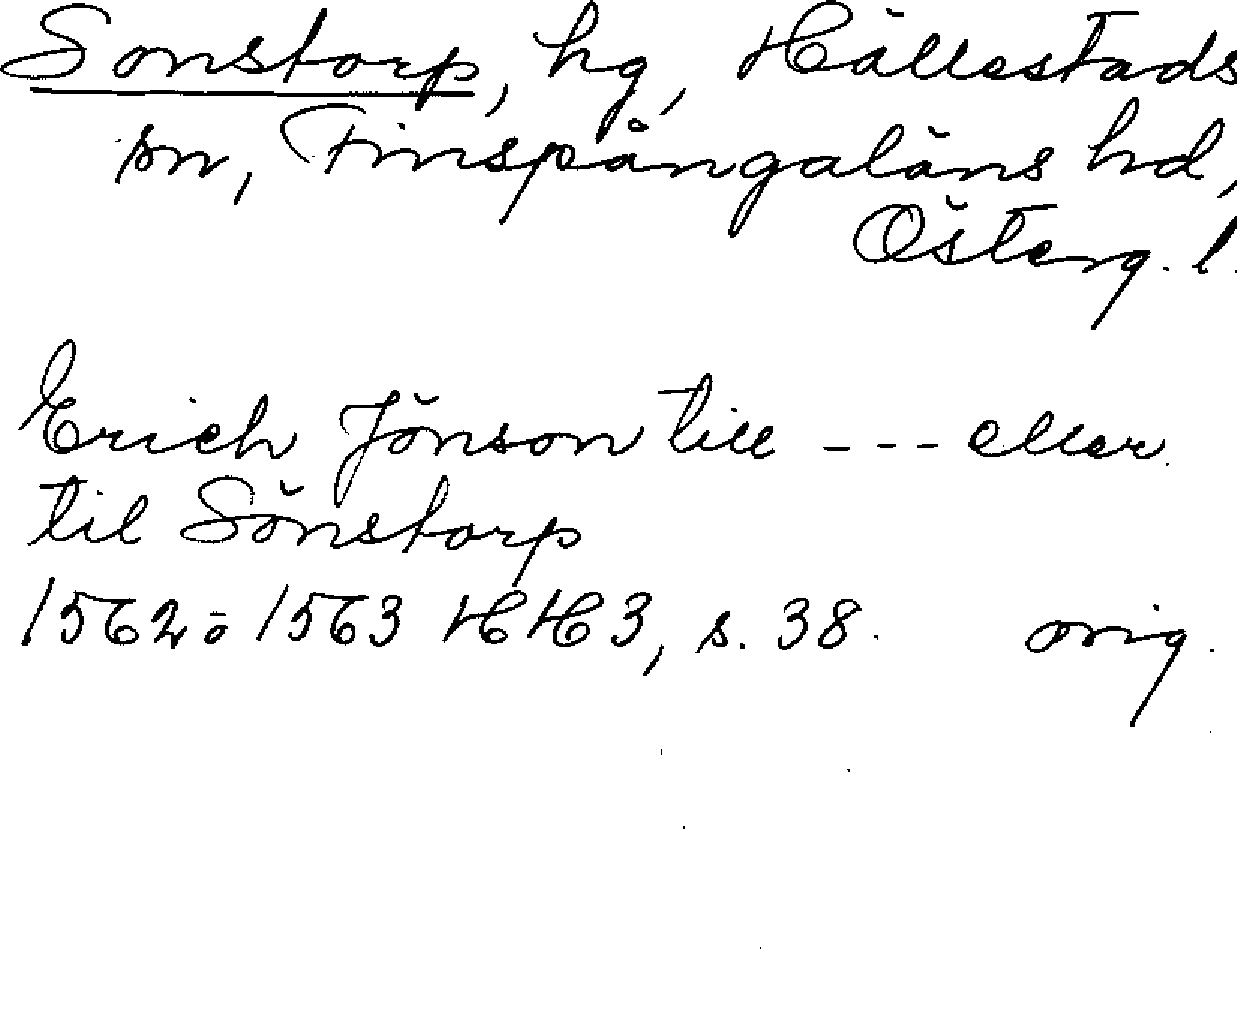 Sonstorp, hg, Hällestads
sn, Finspångaläns hd,
Österg. l.
Erich Jönson till - - - eller
til Sönstorp
1562 o 1563 HH 3, s. 38. orig.